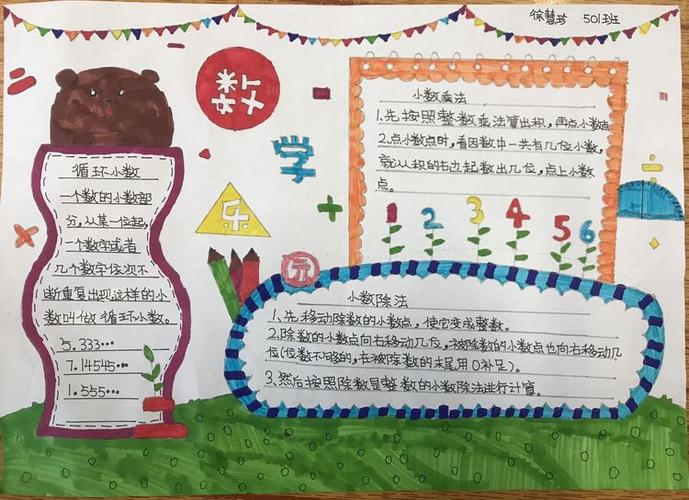 徐慧玲 501班
数
学
乐
园
循环小数
一个数的小数部
分,从某一位起,
一个数字或者
几个数字依次不
断重复出现这样的小
数叫做循环小数。
5.333…
7.14545…
1.555…
小数乘法
1.先按照整数乘法算出积,再点小数点
2.点小数点时,看因数中一共有几位小数,
就从积的右边起数出几位,点上小数
点。
1 2 3 4 5 6
小数除法
1.先移动除数的小数点,使它变成整数。
2.除数的小数点向右移动几位,被除数的小数点也向右移动几
位(位数不够的,在被除数的末尾用0补足)。
3.然后按照除数是整数的小数除法进行计算。